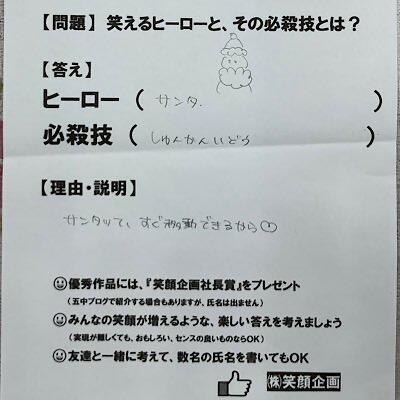 【問題】 笑えるヒーローと、その必殺技とは？
【答え】
ヒーロー （ サンタ. ）
必殺技 （ しゅんかんいどう ）
【理由・説明】
サンタって、すぐ移動できるから
優秀作品には、『笑顔企画社長賞』をプレゼント
（五中ブログで紹介する場合もありますが、氏名は出ません）
みんなの笑顔が増えるような、楽しい答えを考えましょう
（実現が難しくても、おもしろい、センスの良いものならOK）
友達と一緒に考えて、数名の氏名を書いてもOK
㈱笑顔企画